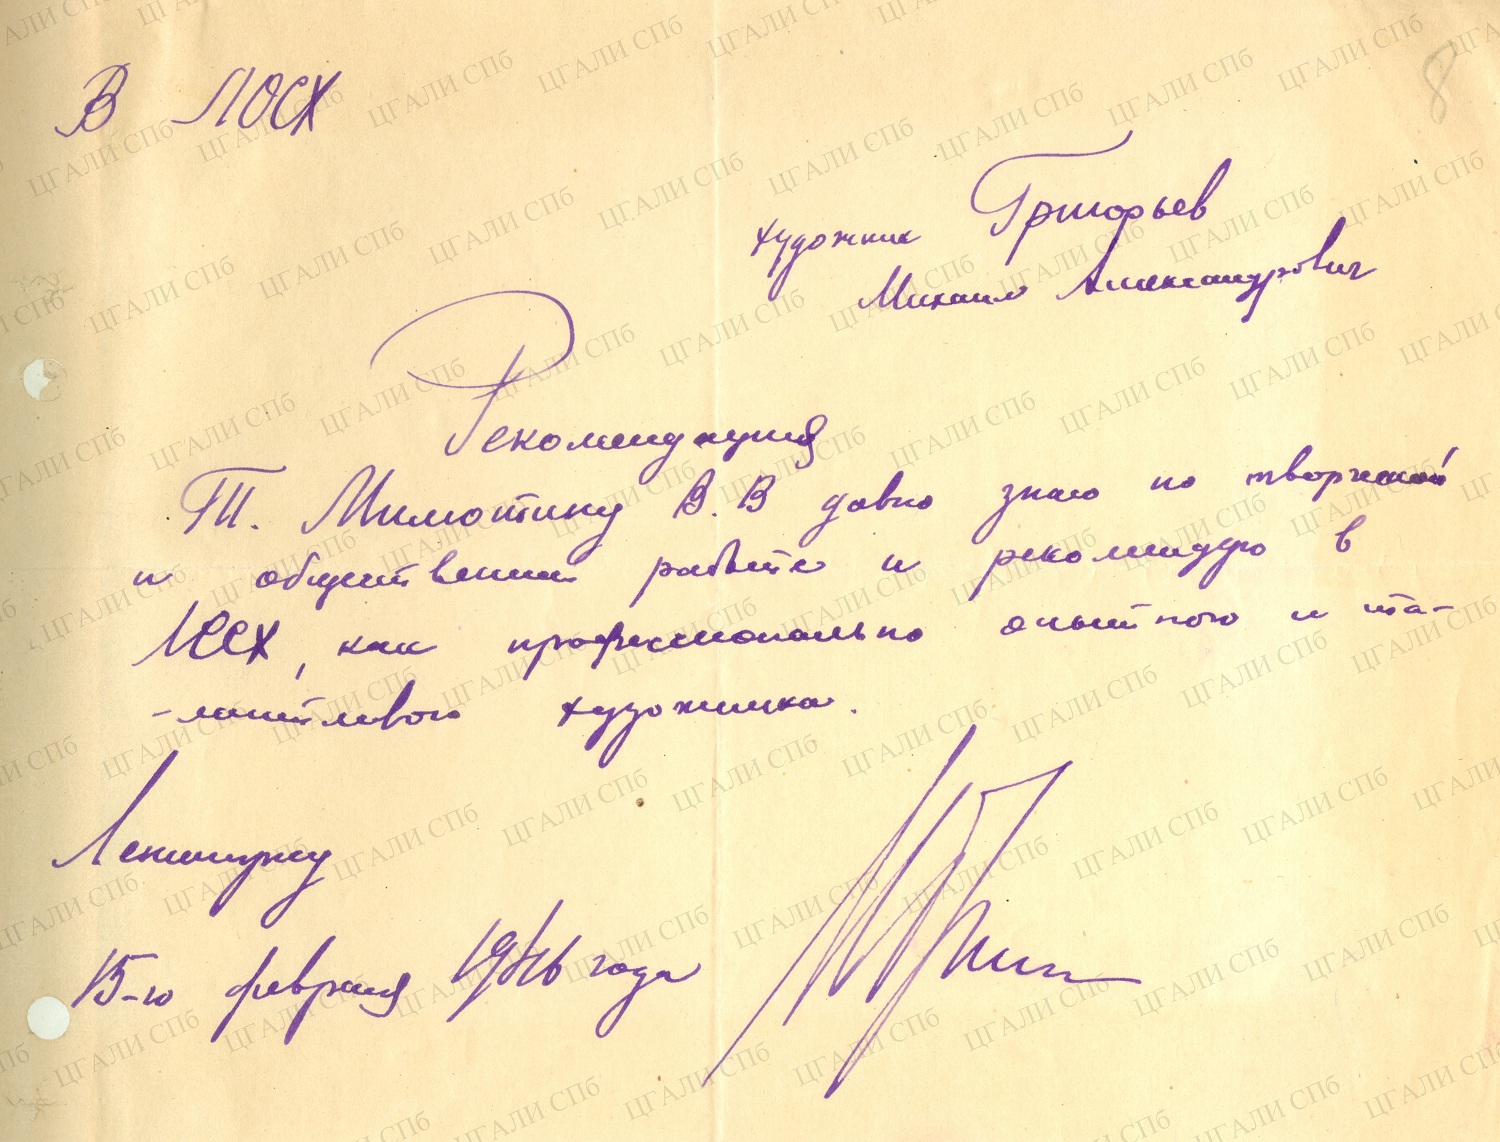 8
В ЛОСХ
художник Григорьев
Михаил Александрович
Рекомендация
Т. Милютину В. В давно знаю по творческой
и общественной работе и рекомендую в
ЛССХ, как профессионально опытного и та-
-лантливого художника.
Ленинград
15-го февраля 1946 года
ЦГАЛИ СПб